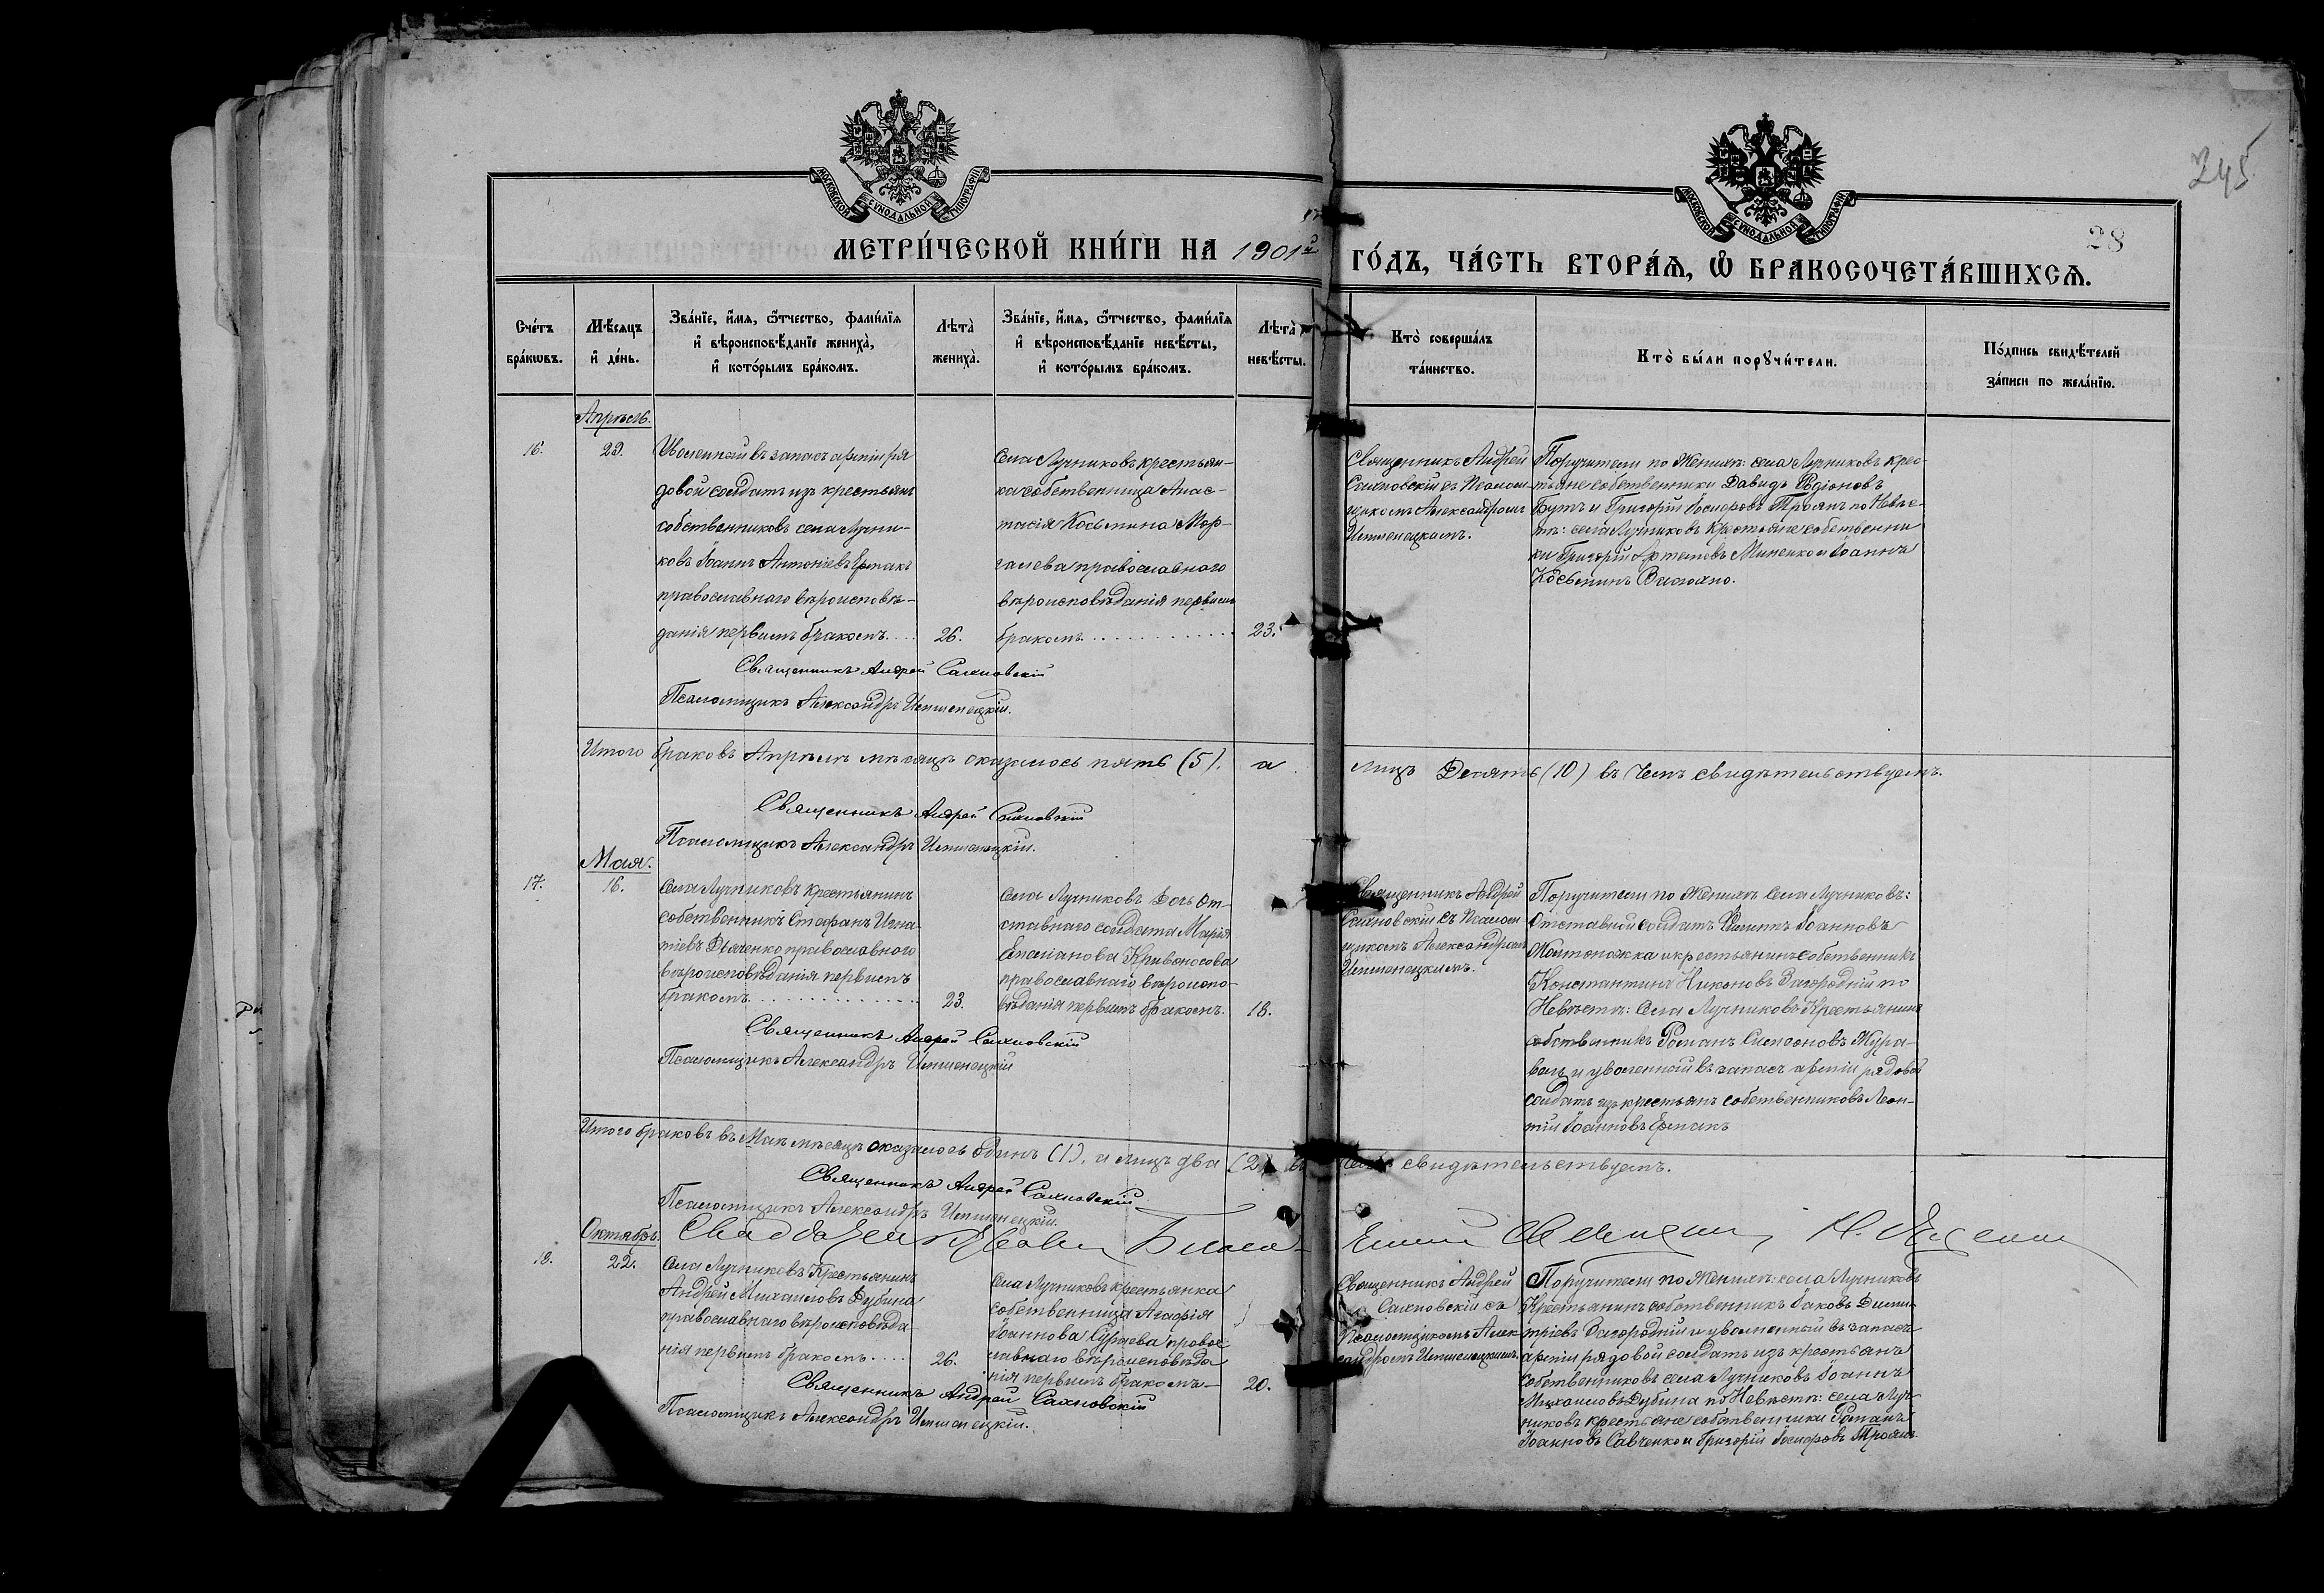 245
28
МОСКОВСКОЙ СѴНОДАЛЬНОЙ ТИПОГРАФІИ
МОСКОВСКОЙ СѴНОДАЛЬНОЙ ТИПОГРАФІИ
МЕТРИ́ЧЕСКОЙ КНИ́ГИ НА 1901й ГО́ДЪ, ЧА́СТЬ ВТОРА́Ѧ, Ѿ БРАКОСОЧЕТА́ВШИХСѦ.
Сче́тъ бра́кѡвъ.
Мѣ́сѧцъ и҆ де́нь.
Зва́нїе, и҆́мѧ, ѻ҆́тчество, фами́лїѧ
и҆ вѣроисповѣ́данїе жениха̀,
и҆ кото́рымъ бра́комъ.
Лѣта̀ жениха̀.
Зва́нїе, и҆́мѧ, ѻ҆́тчество, фами́лїѧ
и҆ вѣроисповѣ́данїе невѣ́сты,
и҆ кото́рымъ бра́комъ.
Лѣта̀ невѣ́сты.
Кто̀ соверша́лъ
та́инство.
Кто̀ бы́ли порꙋчи́тели.
По́дпись свидѣ́телей
за́писи по жела́нїю.
Апрѣль.
16.
29.
Уволенный въ запасъ арміи ря
довой солдатъ изъ крестьянъ
собственниковъ села Лучни-
ковъ Іоаннъ Антоніевъ Ермакъ
православнаго вѣроисповѣ-
данія первымъ бракомъ....
26.
Села Лучниковъ крестьян-
ка собственница Анас-
тасія Косьмина Мор-
галева православного
вѣроисповѣданія первымъ
бракомъ
23.
Священникъ Андрей
Сахновскій съ Псалом-
щикомъ Александромъ
Поручители по Женихѣ: села Лучниковъ крес-
тьяне собственники Давидъ Родіоновъ
Бутъ и Григорій Іосифовъ Троянъ по Невѣс-
тѣ: села Лучниковъ Крестьяне собственни
ки Григорій Артемовъ Миненко и Іоаннъ
Косьминъ
Священникъ Андрей Сахновскій
Псаломщикъ Александръ
Итого браковъ Апрѣлѣ мѣсяцѣ оказалось пять (5). а лицъ Десять (10) въ чемъ свидѣтельствуемъ.
Священникъ Андрей Сахновскій
Псаломщикъ Александръ
Мая.
17.
16.
Села Лучниковъ крестьянинъ
собственникъ Стефанъ Игна-
тіевъ Дьяченко православного
вѣроисповѣданія первымъ
бракомъ
23.
Села Лучниковъ Дочь от-
ставнаго солдата Марія
Емеліанова Кривоносова
православнаго вѣроиспо-
вѣданія первымъ бракомъ.
18.
Священникъ Андрей
Сахновскій съ Псалом
щикомъ Александромъ
Поручители по Женихѣ Села Лучниковъ:
Отставной солдатъ Филиппъ Іоанновъ
Жовтоножка и крестьянинъ собственникъ
Константинъ Никоновъ Загородній по
Невѣстѣ: Села Лучниковъ Крестьянинъ
собственникъ Романъ Симеоновъ Жура-
вель и уволенный въ запасъ арміи рядовой
солдатъ изъ крестьянъ собственниковъ Леон-
тій Іоанновъ Ермакъ
Священникъ Андрей Сахновскій
Псаломщикъ Александръ
Итого браковъ въ Маѣ мѣсяцѣ оказалось Одинъ (1), а лицъ два (2) въ чемъ свидѣтельствуемъ.
Священникъ Андрей Сахновскій
Псаломщикъ Александръ
Октябрь.
18.
22.
Села Лучниковъ Крестьянинъ
Андрей Михаиловъ Дубина
православнаго вѣроисповѣда
нія первымъ бракомъ....
26.
Села Лучниковъ крестьянка
собственница Агафія
Іоаннова православнаго вѣроисповѣда
нія первымъ бракомъ
20.
Священникъ Андрей
Сахновскій съ
Псаломщикомъ Алек-
сандромъ
Поручители по Женихѣ: села Лучниковъ
Крестьянинъ собственникъ Іаковъ Дими-
тріевъ Загородній и уволенный въ запасъ
арміи рядовой солдатъ изъ крестьянъ
собственниковъ села Лучниковъ Іоаннъ
Михаиловъ Дубина по Невѣстѣ: села Луч-
никовъ крестьяне собственники Романъ
Іоанновъ Савченко и Григорій Іосифовъ Троянъ.
Священникъ Андрей Сахновскій
Псаломщикъ Александръ